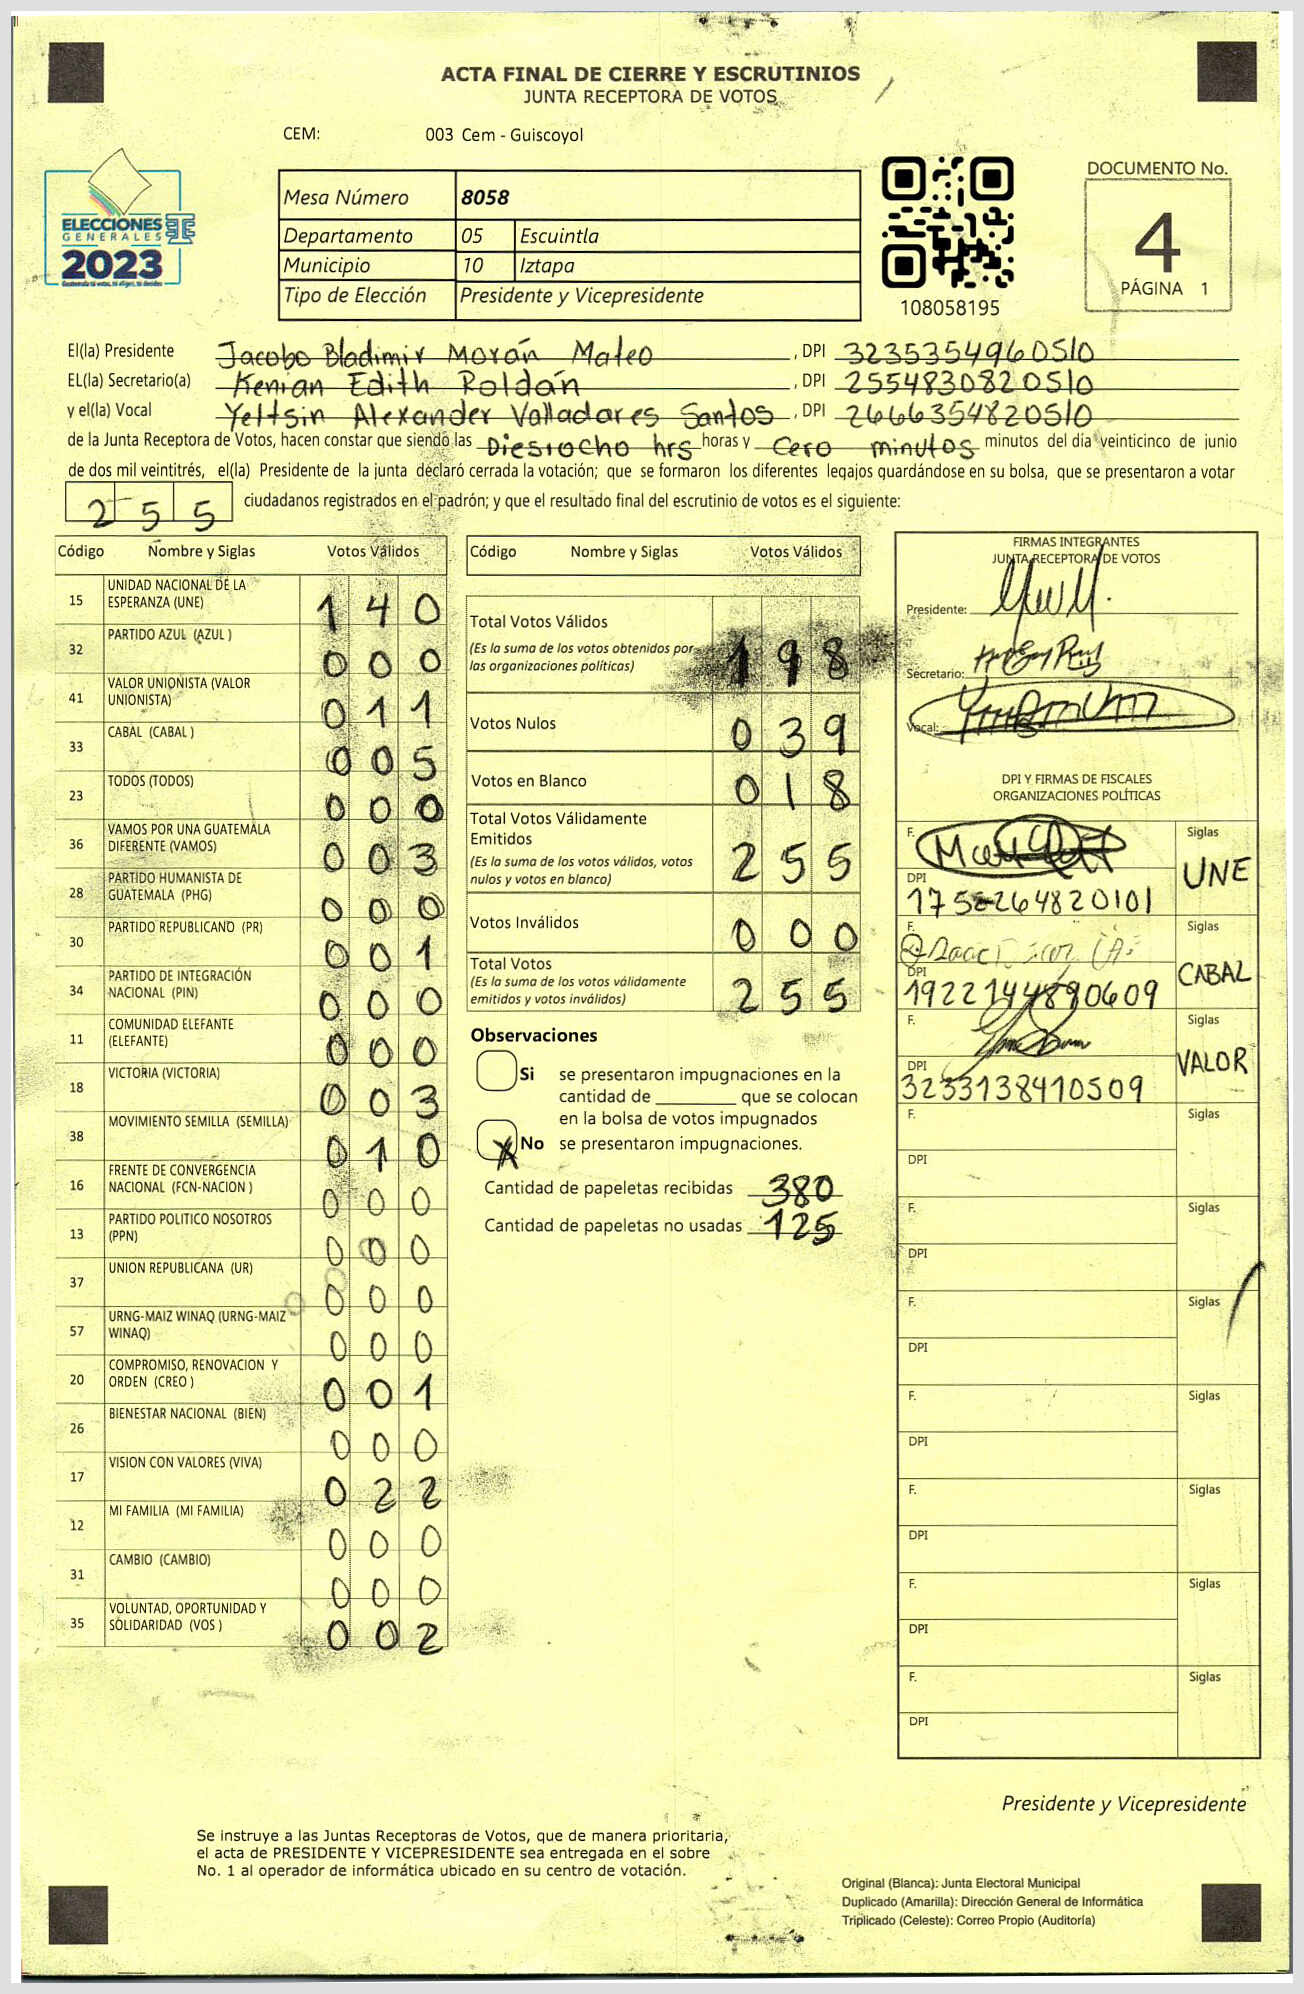 ACTA FINAL DE CIERRE Y ESCRUTINIOS
JUNTA RECEPTORA DE VOTOS
CEM: 003 Cem - Guiscoyol
ELECCIONES
GENERALES
2023
Mesa Número 8058
Departamento 05 Escuintla
Municipio 10 Iztapa
Tipo de Elección Presidente y Vicepresidente
108058195
DOCUMENTO No.
4
PÁGINA 1
El(la) Presidente Jacobo Bladimir Morán Mateo, DPI 3235354960510
EL(la) Secretario(a) Kenian Edith Roldán, DPI 2554830820510
y el(la) Vocal Yeltsin Alexander Valladares Santos, DPI 2666354820510
de la Junta Receptora de Votos, hacen constar que siendo las Diesiocho hrs horas y Cero minutos minutos del día veinticinco de junio
de dos mil veintitrés, el(la) Presidente de la junta declaró cerrada la votación; que se formaron los diferentes legajos guardándose en su bolsa, que se presentaron a votar
255 ciudadanos registrados en el padrón; y que el resultado final del escrutinio de votos es el siguiente:
Código Nombre y Siglas Votos Válidos
15 UNIDAD NACIONAL DE LA ESPERANZA (UNE) 140
32 PARTIDO AZUL (AZUL ) 000
41 VALOR UNIONISTA (VALOR UNIONISTA) 011
33 CABAL (CABAL ) 005
23 TODOS (TODOS) 000
36 VAMOS POR UNA GUATEMALA DIFERENTE (VAMOS) 003
28 PARTIDO HUMANISTA DE GUATEMALA (PHG) 000
30 PARTIDO REPUBLICANO (PR) 001
34 PARTIDO DE INTEGRACIÓN NACIONAL (PIN) 000
11 COMUNIDAD ELEFANTE (ELEFANTE) 000
18 VICTORIA (VICTORIA) 003
38 MOVIMIENTO SEMILLA (SEMILLA) 010
16 FRENTE DE CONVERGENCIA NACIONAL (FCN-NACION ) 000
13 PARTIDO POLITICO NOSOTROS (PPN) 000
37 UNION REPUBLICANA (UR) 000
57 URNG-MAIZ WINAQ (URNG-MAIZ WINAQ) 000
20 COMPROMISO, RENOVACION Y ORDEN (CREO ) 001
26 BIENESTAR NACIONAL (BIEN) 000
17 VISION CON VALORES (VIVA) 022
12 MI FAMILIA (MI FAMILIA) 000
31 CAMBIO (CAMBIO) 000
35 VOLUNTAD, OPORTUNIDAD Y SOLIDARIDAD (VOS ) 002
Código Nombre y Siglas Votos Válidos
Total Votos Válidos 198
(Es la suma de los votos obtenidos por
las organizaciones políticas)
Votos Nulos 039
Votos en Blanco 018
Total Votos Válidamente
Emitidos 255
(Es la suma de los votos válidos, votos
nulos y votos en blanco)
Votos Inválidos 000
Total Votos 255
(Es la suma de los votos válidamente
emitidos y votos inválidos)
Observaciones
Si se presentaron impugnaciones en la
cantidad de ________ que se colocan
en la bolsa de votos impugnados
X No se presentaron impugnaciones.
Cantidad de papeletas recibidas 380
Cantidad de papeletas no usadas 125
FIRMAS INTEGRANTES
JUNTA RECEPTORA DE VOTOS
Presidente:
Secretario:
Vocal:
DPI Y FIRMAS DE FISCALES
ORGANIZACIONES POLÍTICAS
F. Siglas UNE
DPI
F. Siglas CABAL
DPI 1922144890609
F. Siglas VALOR
DPI 3233138410509
F. Siglas
DPI
F. Siglas
DPI
F. Siglas
DPI
F. Siglas
DPI
F. Siglas
DPI
F. Siglas
DPI
F. Siglas
DPI
Presidente y Vicepresidente
Se instruye a las Juntas Receptoras de Votos, que de manera prioritaria,
el acta de PRESIDENTE Y VICEPRESIDENTE sea entregada en el sobre
No. 1 al operador de informática ubicado en su centro de votación.
Original (Blanca): Junta Electoral Municipal
Duplicado (Amarilla): Dirección General de Informática
Triplicado (Celeste): Correo Propio (Auditoría)